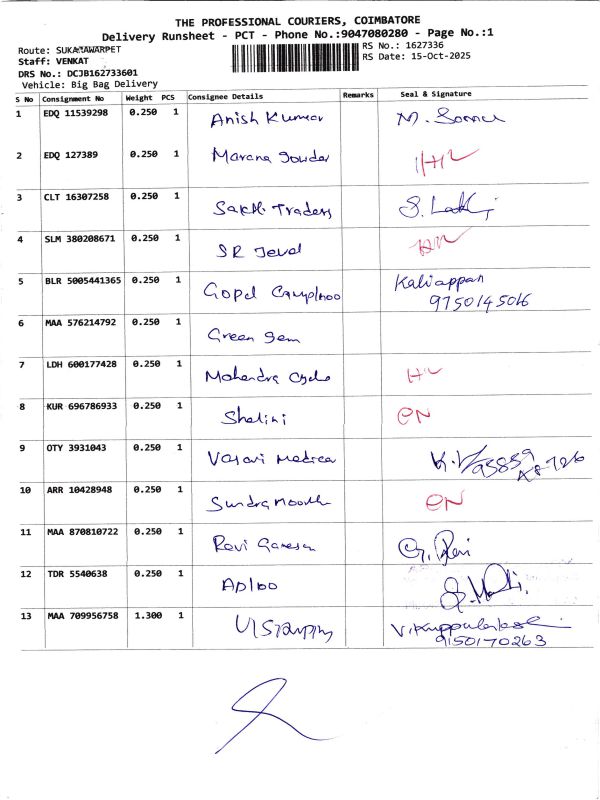 THE PROFESSIONAL COURIERS, COIMBATORE
Delivery Runsheet - PCT - Phone No.:9047080280 - Page No.:1
Route: SUKRAWARPET RS No.: 1627336
Staff: VENKAT RS Date: 15-Oct-2025
DRS No.: DCJB162733601
Vehicle: Big Bag Delivery
S No Consignment No Weight PCS Consignee Details Remarks Seal & Signature
1 EDQ 11539298 0.250 1 Anish Kumar
2 EDQ 127389 0.250 1 Marana Gowder
3 CLT 16307258 0.250 1 Sakthi Traders
4 SLM 380208671 0.250 1 SR Jewel
5 BLR 5005441365 0.250 1 Gopal Kaliappan
9750145016
6 MAA 576214792 0.250 1 Green Gem
7 LDH 600177428 0.250 1 Mahendra Cycle
8 KUR 696786933 0.250 1 Shalini
9 OTY 3931043 0.250 1 Vasavi Medical
10 ARR 10428948 0.250 1 Sundramoorth
11 MAA 870810722 0.250 1 Ravi Ganesan G. Ravi
12 TDR 5540638 0.250 1
13 MAA 709956758 1.300 1
9150170263